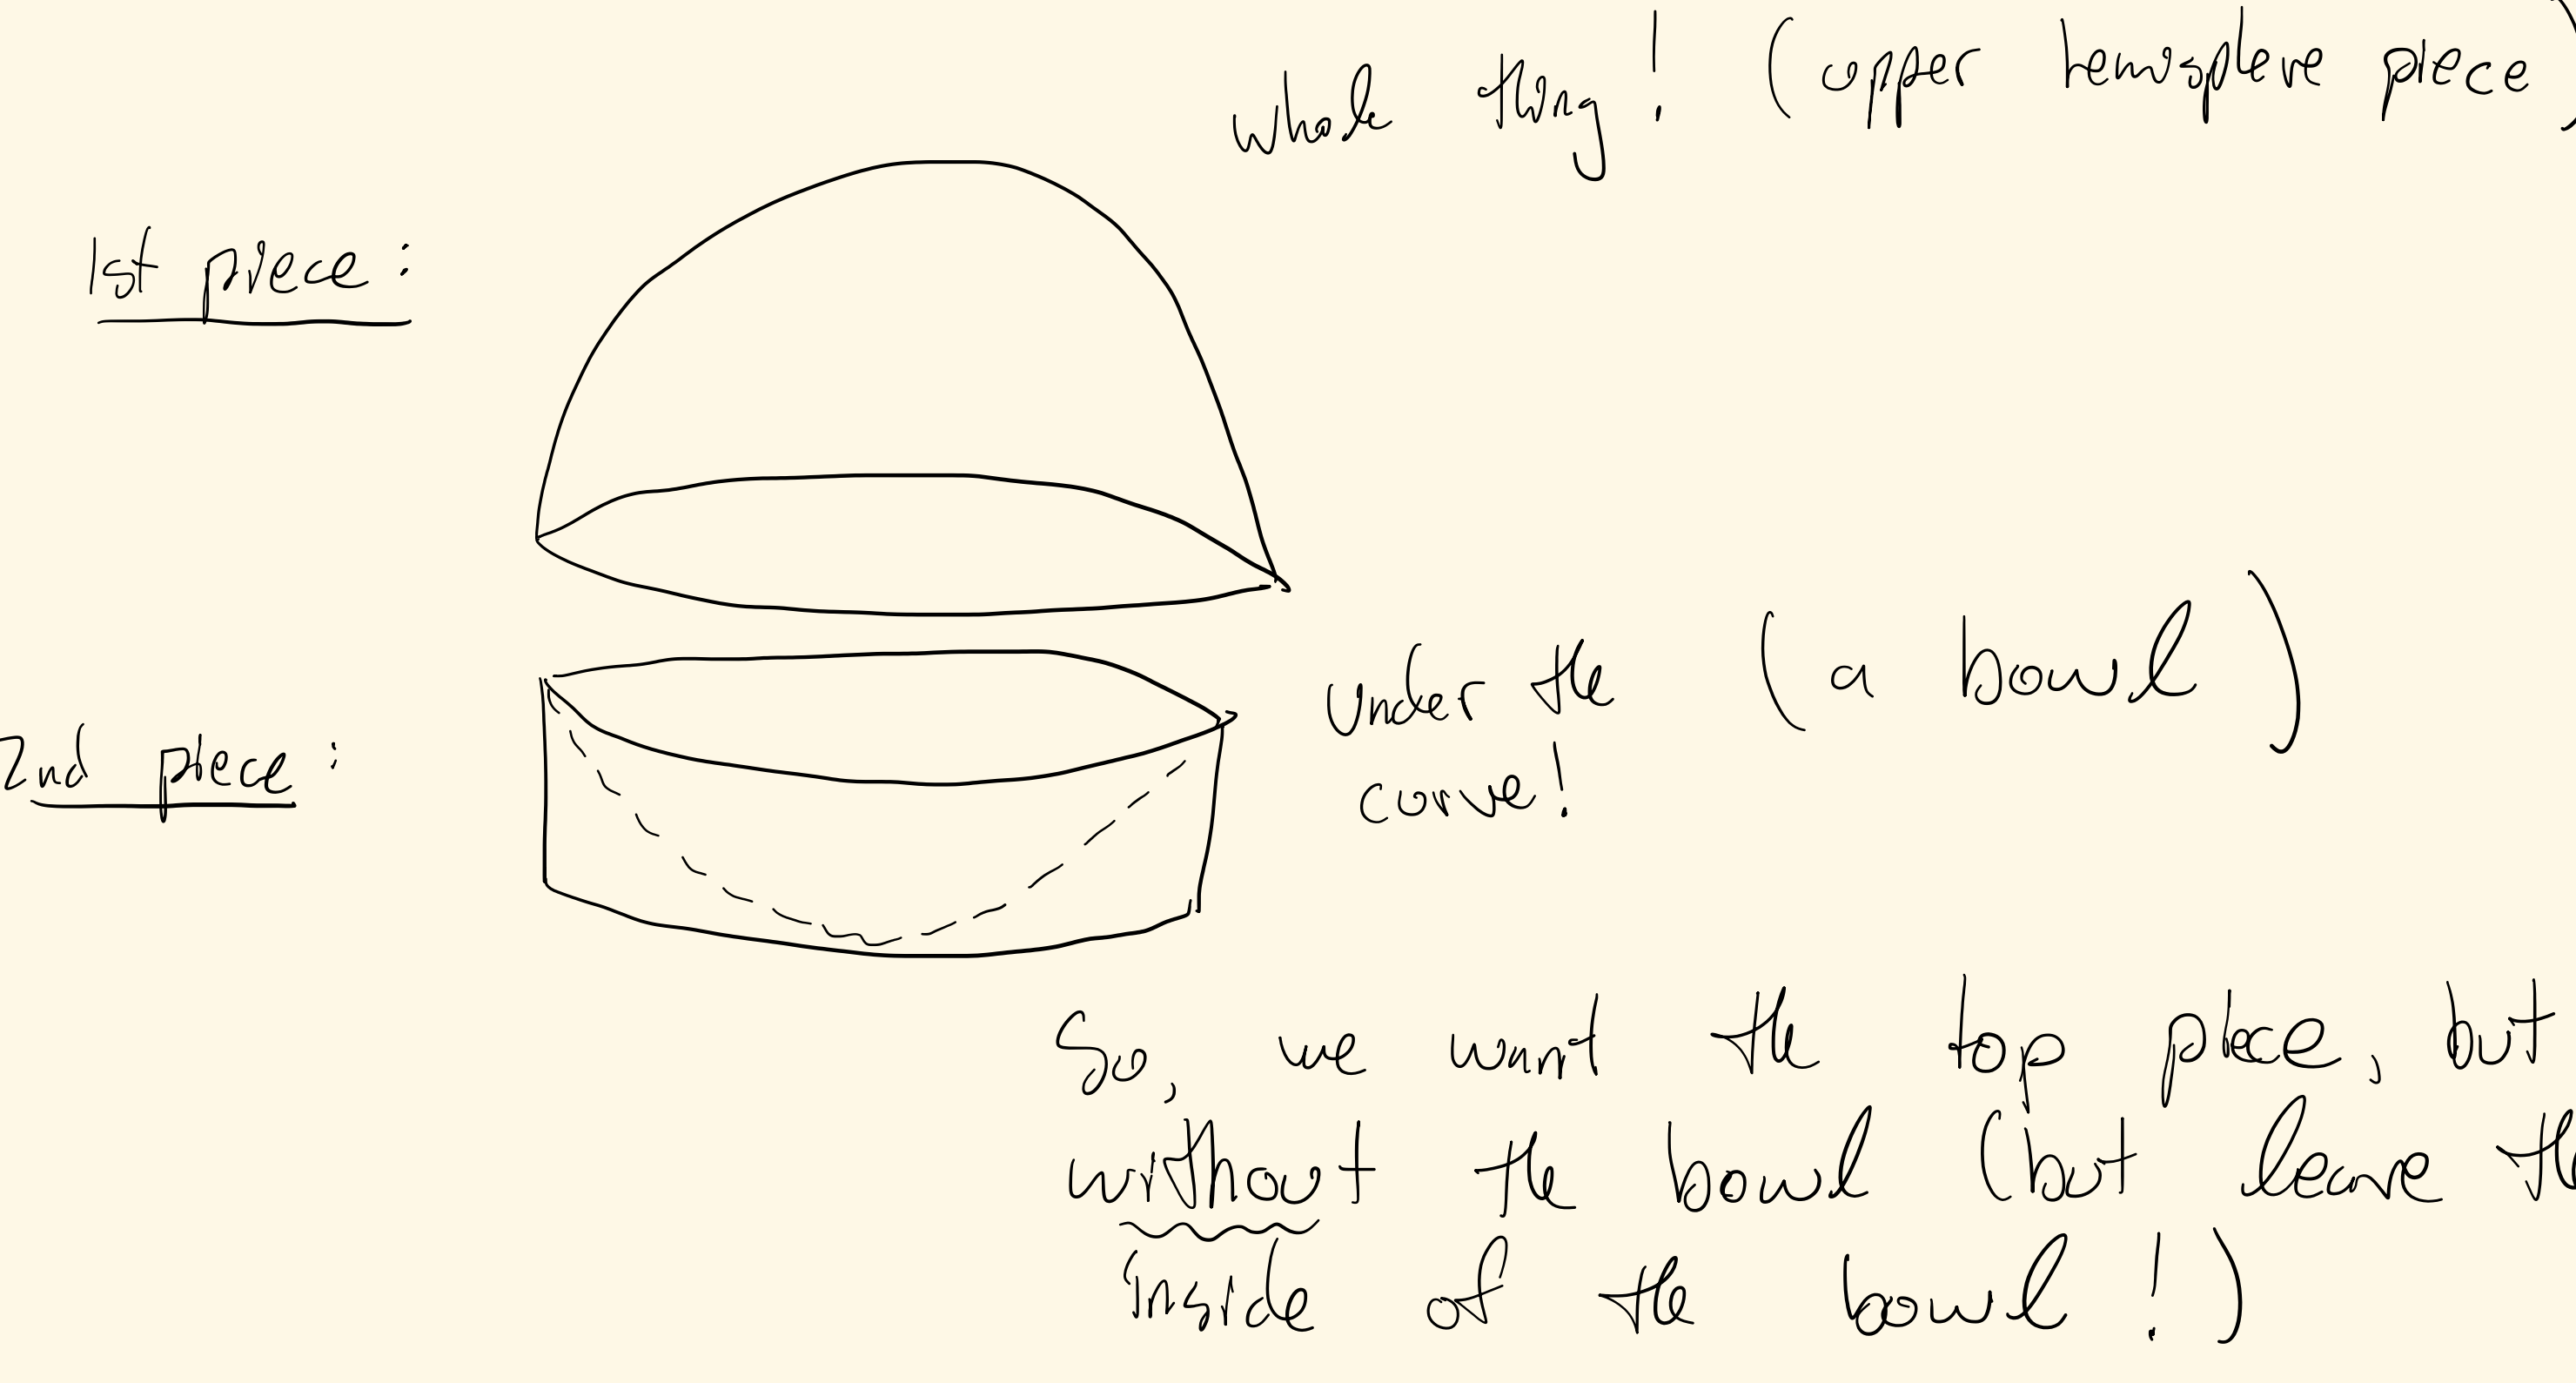 whole thing! (upper hemisphere piece)
1st piece:
Under the (a bowl)
curve!
2nd piece:
So, we want the top piece, but
without the bowl (but leave the
inside of the bowl!)